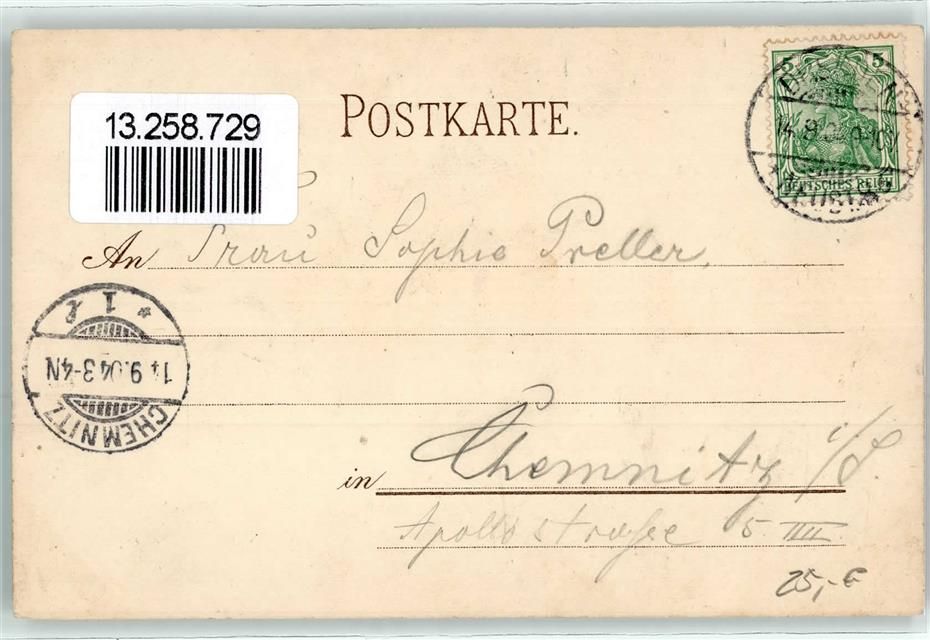 13.258.729
POSTKARTE.
5 5
DEUTSCHES REICH
An Frau Sophie Preller,
* 1 *
14 9.04 3-4N
CHEMNITZ
in Chemnitz i/S.
Apollostraße 5 IIII
25,- €